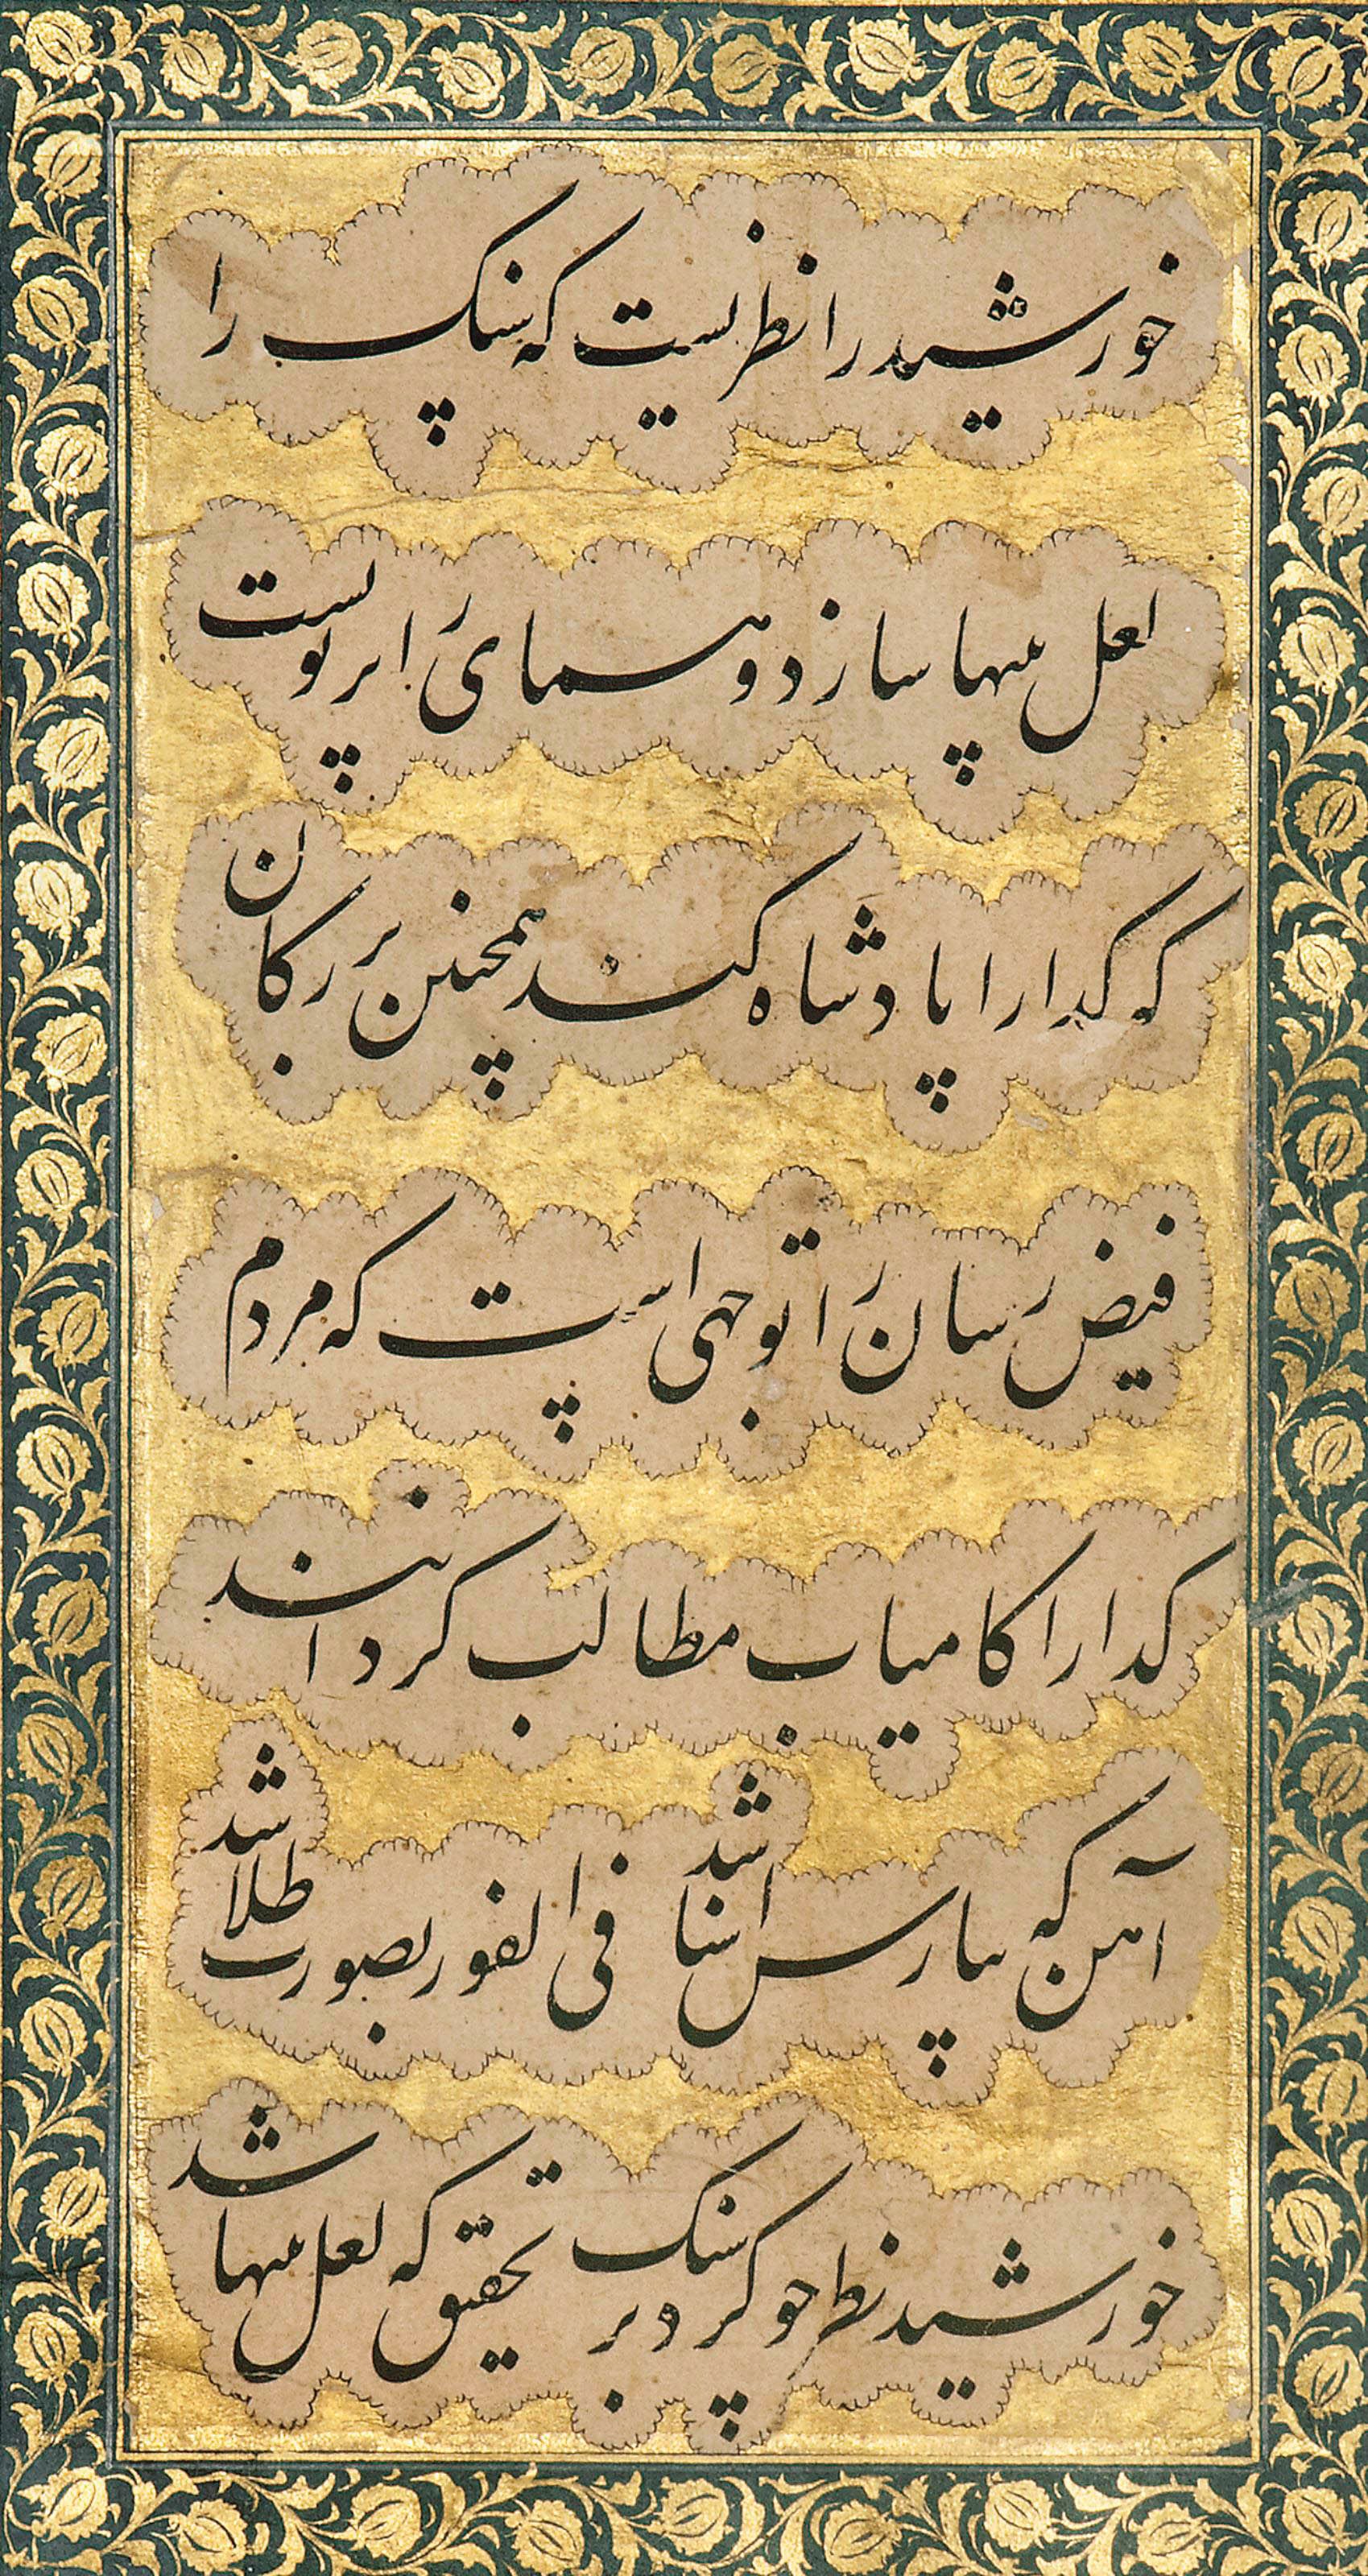 خورشید را نظریست که سنک را
لعل بیبها سازد و همای را پرتویست
که کدا را پادشاه کند همچنین بزرکان
فیض رسان را توجهی است که مردم
کدا را کامیاب مطالب کرداند
آهن که بپارس اشنا شد فی الفور بصورت طلا شد
خورشید نظر چو کرد بر سنک تحقیق که لعل بیبها شد